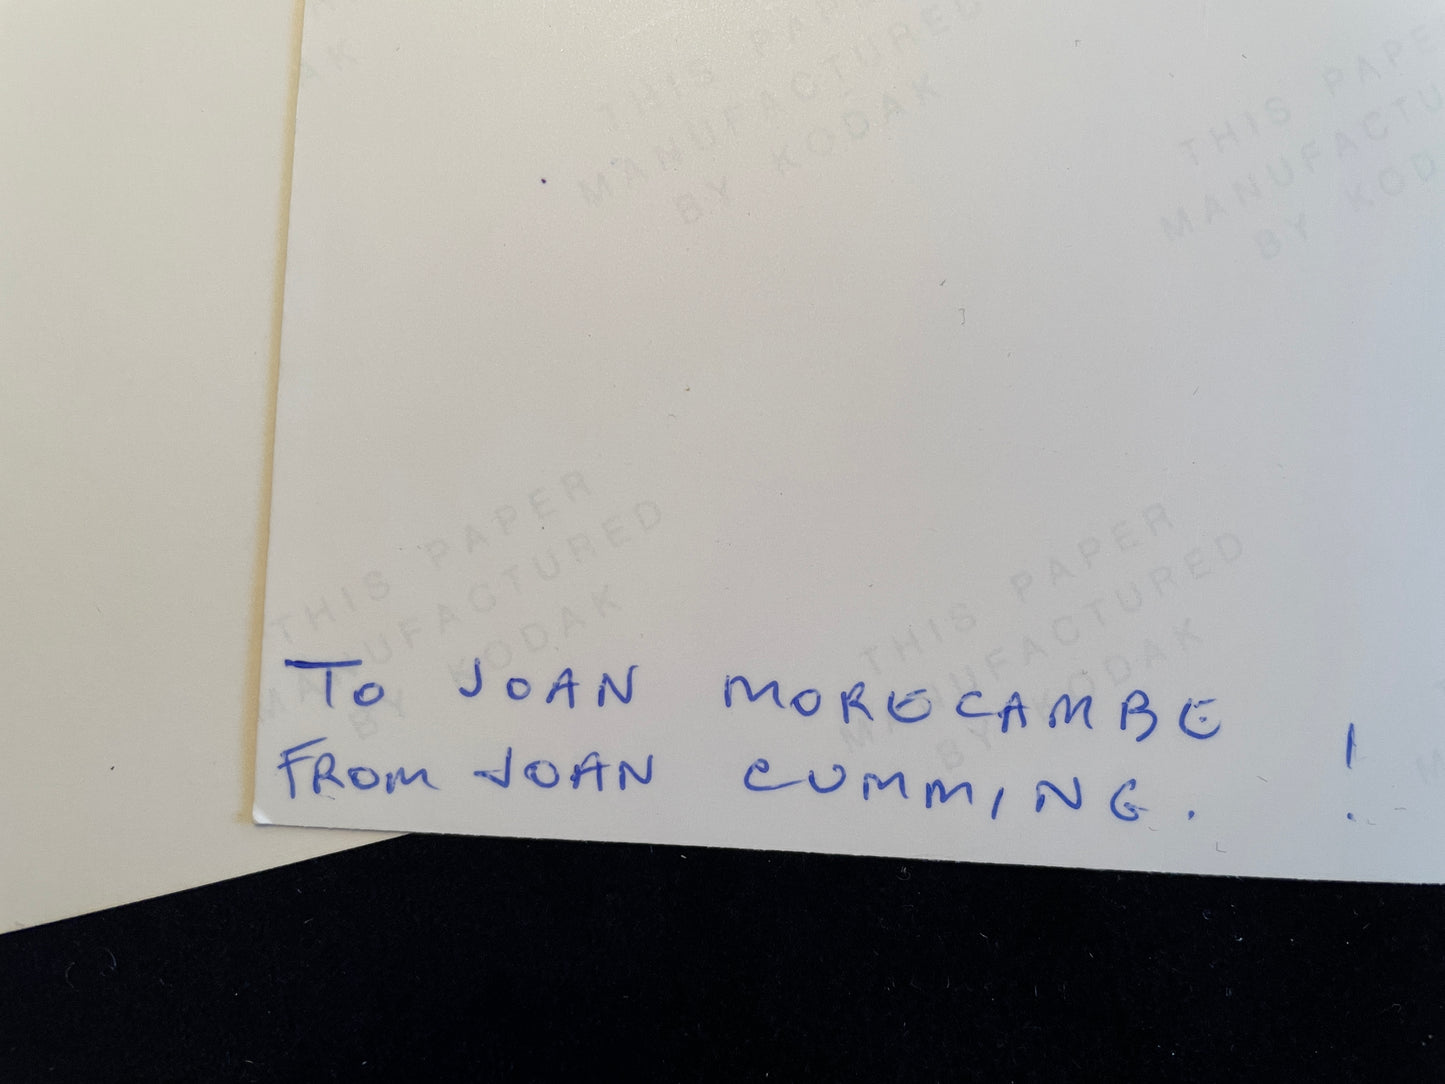 AK
THIS PAPER
MANUFACTURED
BY KODAK
THIS PAPE
MANUFACTU
BY KOD
THIS PAPER
MANUFACTURED
BY KODAK
THIS PAPER
MANUFACTURED
BY KODAK
TO JOAN MORECAMBE
FROM JOAN CUMMING. !